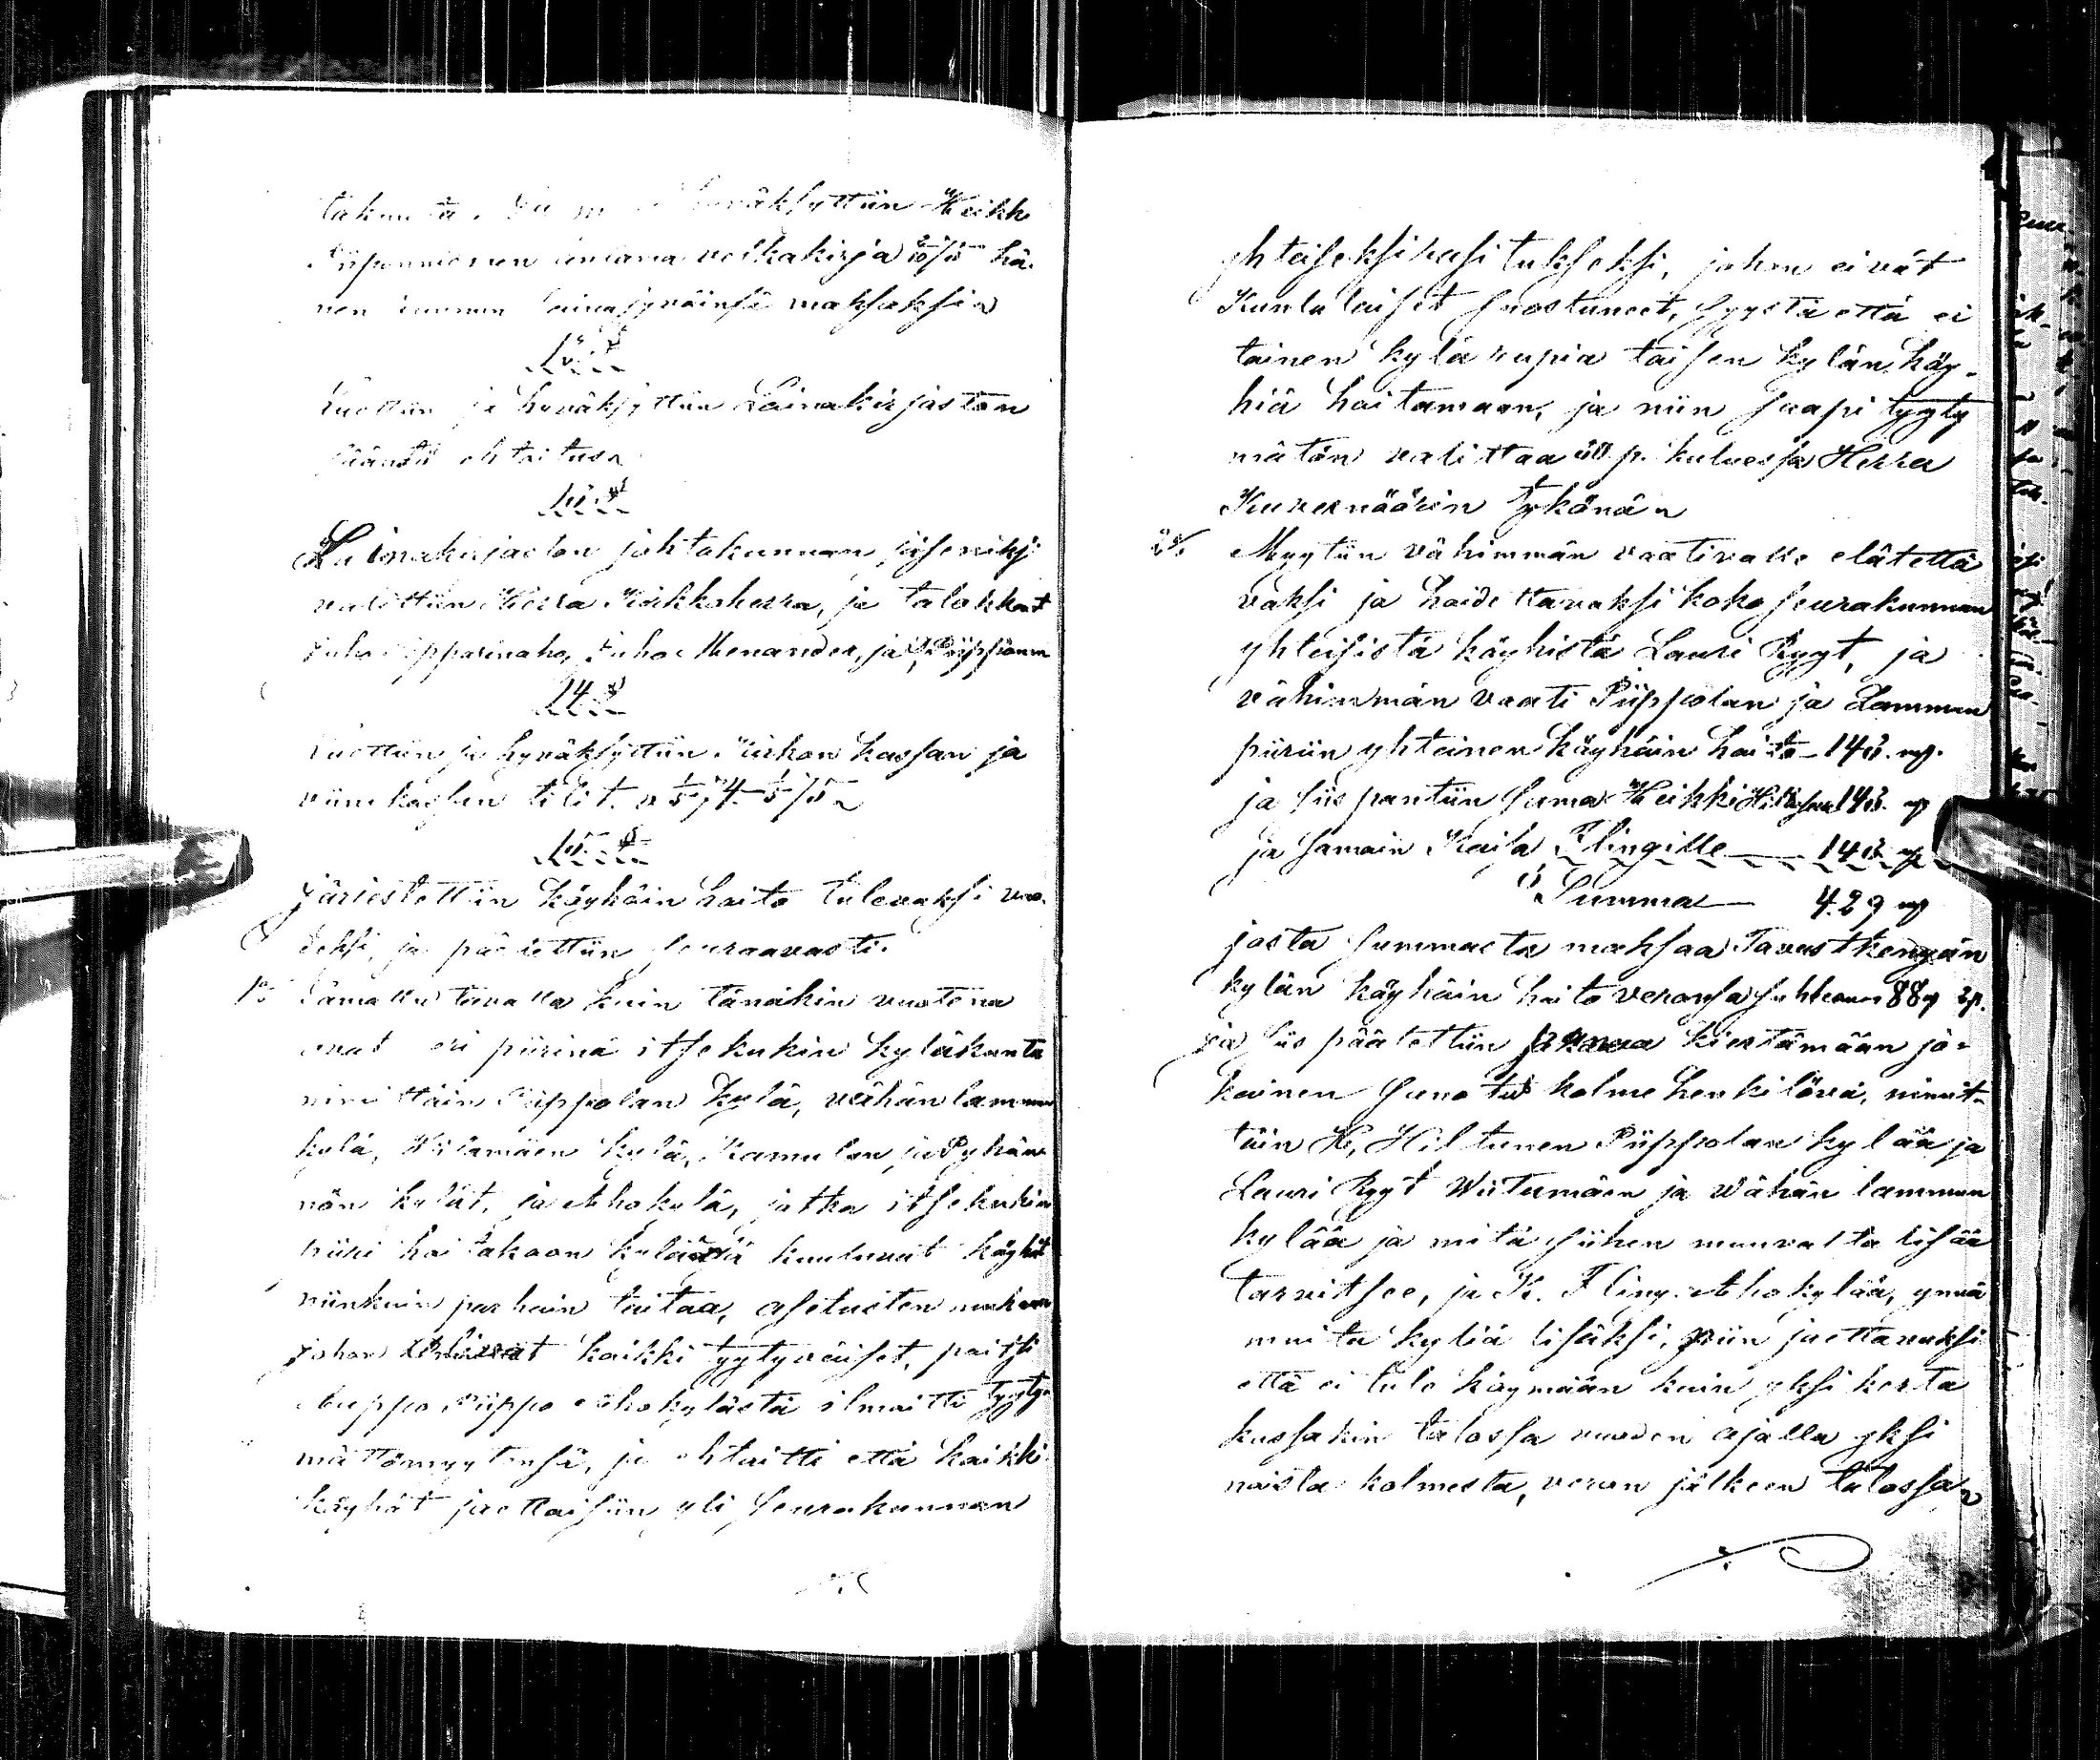 hyväksyttiin Heikki
Piipponiemen antama velkakirja hä-
nen lainajyväinsä maksaksi
Luettiin ja hyväksyttiin Lainakirjaston
sääntö ehtoitus
Lainakirjaston johtokunnan jäseniksi
valittiin Herra Kirkkoherra, ja talokkaat
Juho Menander, ja Piipponen
14 §
Luettiin ja hyväksyttiin kassan ja
viina kassan tilit
15 §
Järjestettiin käyhäin hoito tulevaksi vuo-
deksi, ja päätettiin seuraavasti.
1:o Samalla tavalla kuin tänäkin vuotena
ovat eri piirinä itsekukin kyläkunta
nimittäin Piippolan kylä, vähän lammin
kylä, Wiitamäen kylä, Kamulan ja Pyhän-
nän kylät, ja Ahokylä, jotka itsekukin
piiri hoitakoon kyläänsä kuuluvat käyhät
niinkuin parhain taitaa, asetusten mukaan
johon olivat kaikki tyytyväiset, paitsi
Piippo Ahokylästä ilmoitti tyyty-
mättömyytensä, ja ehtoitti että kaikki
käyhät jaettaisiin yli seurakunnan
yhteiseksi rasitukseksi, johon eivät
Kuntalaiset suostuneet, syystä että ei
toinen kylä rupia toisen kylän käy-
hiä hoitamaan, ja niin saapi tyyty
mätön valittaa p. kuluessa Herra
Kuvernöörin tykönä
2:o Myytiin vähimmän vaativalle elätettä
väksi ja hoidettavaksi koko seurakunnan
yhteisistä käyhistä Lauri Ryyt, ja
vähimmän vaati Piippolan ja Lammin
piiriin yhteinen käyhäin hoito – 143. mk.
ja siis pantiin sama Heikki Hiltuselle 143. mk
ja samain Kaisa Flingille — 143 mk
Summa — 429 mk
josta summasta maksaa Tavastkengän
kylän käyhäin hoito veronsa suhteen 88 3 p.
ja siis päätettiin kiertämään jo-
kainen sanotut kolme henkilöä, nimit-
täin H. Hiltunen Piippolan kylää ja
Lauri Ryyt Wiitamäen ja Wähän lammin
kylää ja mitä siihen muualta lisää
tarvitsee, ja K. Fling Ahokylää, ynnä
muita kyliä lisäksi, niin jaettavaksi
että ei tule käymään kuin yksi kerta
kussakin talossa vuoden ajalla yksi
noista kolmesta, veron jälkeen talossa